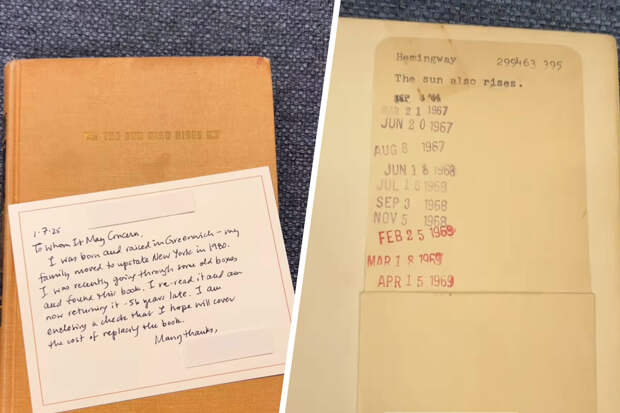 THE SUN ALSO RISES
1-7-25
To Whom It May Concern,
I was born and raised in Greenwich - my
family moved to upstate New York in 1980.
I was recently going through some old boxes
and found this book. I re-read it and am
now returning it - 56 years late. I am
enclosing a check that I hope will cover
the cost of replacing the book.
Many thanks,
Hemingway 299463 395
The sun also rises.
SEP
MAR 21 1967
JUN 20 1967
AUG 8 1967
JUN 18 1968
JUL 18 1968
SEP 3 1968
NOV 5 1968
FEB 25 1969
MAR 18 1969
APR 15 1969